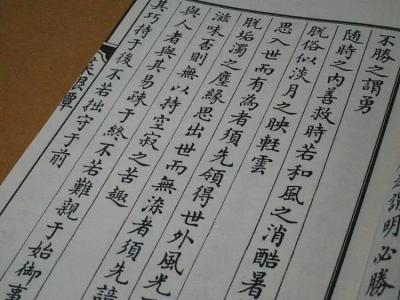 明必勝
不勝之謂勇
随時之内善救時若和風之消酷暑
脫俗似淡月之映輕雲
思入世而有為者須先領得世外風光
脫垢濁之塵緣思出世而無染者須先諳
滋味否則無以持空寂之苦趣
與人者與其易疎于終不若難親于始御事
其巧持于後不若拙守于前
菜根譚